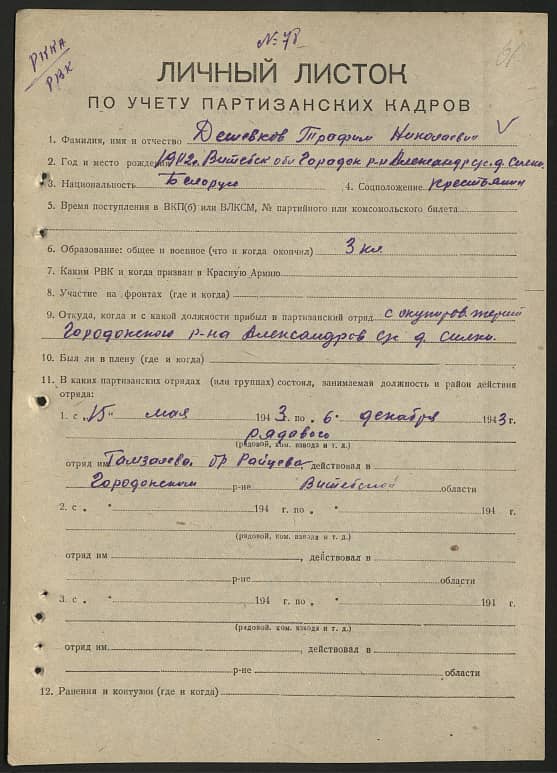 № 78
61
РККА
РВК
ЛИЧНЫЙ ЛИСТОК
ПО УЧЕТУ ПАРТИЗАНСКИХ КАДРОВ
1. Фамилия, имя и отчество Дешевков Трофим Николаевич
2. Год и место рождения 1912г. Витебск обл Городок р-н Александр с/с. д. Силки.
3. Национальность Белорус 4. Соцположение крестьянин
5. Время поступления в ВКП(б) или ВЛКСМ, № партийного или комсомольского билета
6. Образование: общее и военное (что и когда окончил) 3 кл
7. Каким РВК и когда призван в Красную Армию
8. Участие на фронтах (где и когда)
9. Откуда, когда и с какой должности прибыл в партизанский отряд с окупиров. терит
Городокского р-на Александров с/с д. Силки.
10. Был ли в плену (где и когда)
11. В каких партизанских отрядах (или группах) состоял, занимаемая должность и район действия
отряда:
1. с „15" мая 1943 г. по „6" декабря 1943 г.
рядового
(рядовой, ком. взвода и т. д.)
отряд им. бр Райцева, действовал в
Городокском р-не Витебской области
2. с „ " 194 г. по „ " 194 г.
(рядовой, ком. взвода и т. д.)
отряд им , действовал в
р-не области
3. с „ " 194 г. по „ " 194 г.
(рядовой, ком. взвода и т. д.)
отряд им. , действовал в
р-не области
12. Ранения и контузии (где и когда)